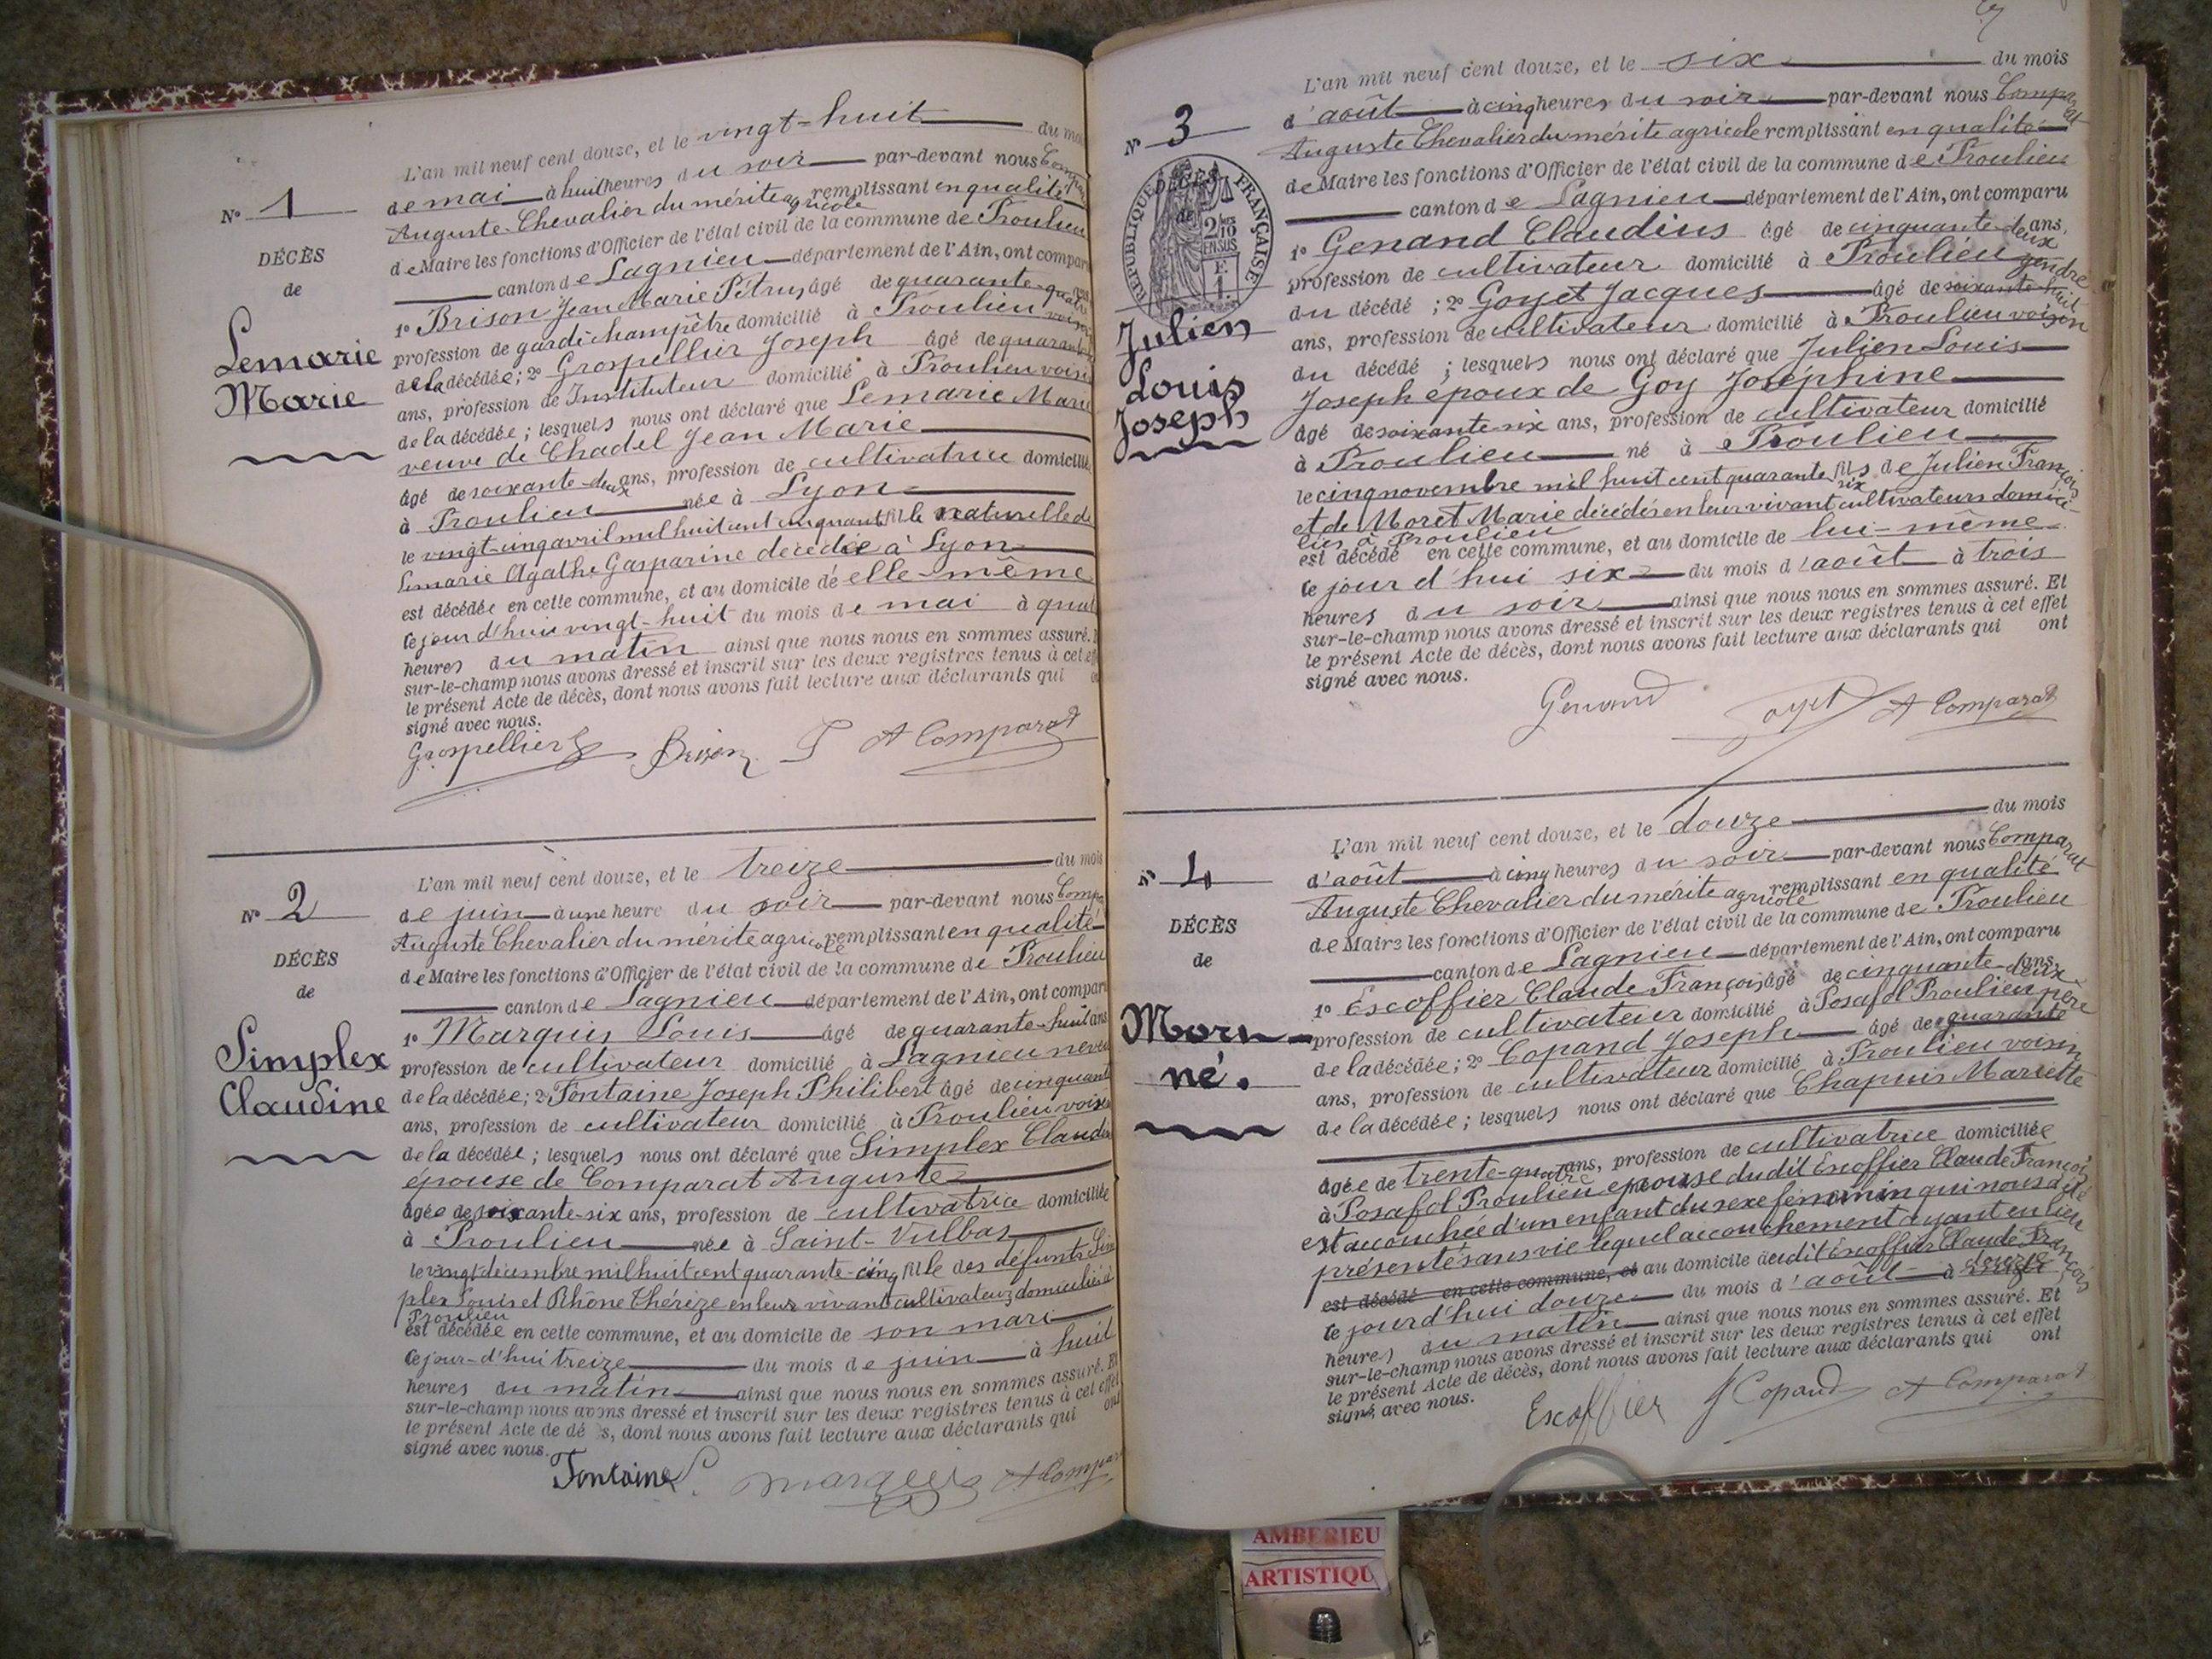 L'an mil neuf cent douze, et le vingt-huit du mois
N° 1
de mai à huit heures du soir par-devant nous Comparat
Auguste Chevalier du mérite agricole remplissant en qualité
de Maire les fonctions d'Officier de l'état civil de la commune de Proulieu
DÉCÈS
de
canton de Lagnieu département de l'Ain, ont comparu
1° Brison Jean Marie Pétrus âgé de quarante-quatre
Lemarie
Marie
profession de garde champêtre domicilié à Proulieu voisin
de la décédée; 2° Grospellier Joseph âgé de quarante
ans, profession de Instituteur domicilié à Proulieu voisin
de la décédée; lesquels nous ont déclaré que Lemarie Marie
veuve de Chadel Jean Marie
âgé de soixante-deux ans, profession de cultivatrice domicilié
à Proulieu née à Lyon
le vingt-cinq avril mil huit cent cinquante fille naturelle de
Lemarie Agathe Gasparine décédée à Lyon
est décédée en cette commune, et au domicile de elle-même
ce jour d'hui vingt-huit du mois de mai à quatre
heures du matin ainsi que nous nous en sommes assuré. Et
sur-le-champ nous avons dressé et inscrit sur les deux registres tenus à cet effet
le présent Acte de décès, dont nous avons fait lecture aux déclarants qui ont
signé avec nous.
Grospellier J Brison P A Comparat
L'an mil neuf cent douze, et le treize du mois
N° 2
de juin à une heure du soir par-devant nous Comparat
Auguste Chevalier du mérite agricole remplissant en qualité
DÉCÈS
de
de Maire les fonctions d'Officier de l'état civil de la commune de Proulieu
canton de Lagnieu département de l'Ain, ont comparu
1° Marquis Louis âgé de quarante-huit ans
Simplex
Claudine
profession de cultivateur domicilié à Lagnieu neveu
de la décédée; 2° Fontaine Joseph Philibert âgé de cinquante
ans, profession de cultivateur domicilié à Proulieu voisin
de la décédée; lesquels nous ont déclaré que Simplex Claudine
épouse de Comparat Auguste
âgée de soixante-six ans, profession de cultivatrice domiciliée
à Proulieu née à Saint-Vulbas
le vingt décembre mil huit cent quarante-cinq fille des défunts Sim
plex Louis et Rhône Thérèze en leur vivant cultivateurs domiciliés à
Proulieu
est décédée en cette commune, et au domicile de son mari
ce jour-d'hui treize du mois de juin à huit
heures du matin ainsi que nous nous en sommes assuré. Et
sur-le-champ nous avons dressé et inscrit sur les deux registres tenus à cet effet
le présent Acte de dé s, dont nous avons fait lecture aux déclarants qui ont
signé avec nous.
Fontaine J. Marquis A Comparat
L'an mil neuf cent douze, et le six du mois
N° 3
d'août à cinq heures du soir par-devant nous Comparat
Auguste Chevalier du mérite agricole remplissant en qualité
de Maire les fonctions d'Officier de l'état civil de la commune de Proulieu
RÉPUBLIQUE FRANÇAISE
DÉCÈS
de
2/10 EN SUS
canton de Lagnieu département de l'Ain, ont comparu
1° Genand Claudius âgé de cinquante-deux ans,
profession de cultivateur domicilié à Proulieu gendre
du décédé; 2° Goyet Jacques âgé de soixante-huit
Julien
Louis
Joseph
ans, profession de cultivateur domicilié à Proulieu voisin
du décédé; lesquels nous ont déclaré que Julien Louis
Joseph époux de Goy Joséphine
âgé de soixante-six ans, profession de cultivateur domicilié
à Proulieu né à Proulieu
le cinq novembre mil huit cent quarante six fils de Julien François
et de Moret Marie décédés en leur vivant cultivateurs domici-
liés à Proulieu
est décédé en cette commune, et au domicile de lui-même
ce jour d'hui six du mois d'août à trois
heures du soir ainsi que nous nous en sommes assuré. Et
sur-le-champ nous avons dressé et inscrit sur les deux registres tenus à cet effet
le présent Acte de décès, dont nous avons fait lecture aux déclarants qui ont
signé avec nous.
Genand Goyet A Comparat
L'an mil neuf cent douze, et le douze du mois
N° 4
d'août à cinq heures du soir par-devant nous Comparat
Auguste Chevalier du mérite agricole remplissant en qualité
DÉCÈS
de
de Maire les fonctions d'Officier de l'état civil de la commune de Proulieu
canton de Lagnieu département de l'Ain, ont comparu
1° Escoffier Claude François âgé de cinquante-deux ans,
Morn-
né.
profession de cultivateur domicilié à Posafol Proulieu père
de la décédée; 2° Copand Joseph âgé de quarante
ans, profession de cultivateur domicilié à Proulieu voisin
de la décédée; lesquels nous ont déclaré que Chapuis Mariette
âgée de trente-quatre ans, profession de cultivatrice domiciliée
à Posafol Proulieu épouse du dit Escoffier Claude François
est accouchée d'un enfant du sexe féminin qui nous a été
présenté sans vie lequel accouchement ayant eu lieu
est décédé en cette commune, et au domicile du dit Escoffier Claude François
ce jourd'hui douze du mois d'août à douze
heures du matin ainsi que nous nous en sommes assuré. Et
sur-le-champ nous avons dressé et inscrit sur les deux registres tenus à cet effet
le présent Acte de décès, dont nous avons fait lecture aux déclarants qui ont
signé avec nous.
Escoffier J Copand A Comparat
AMBERIEU
ARTISTIQU